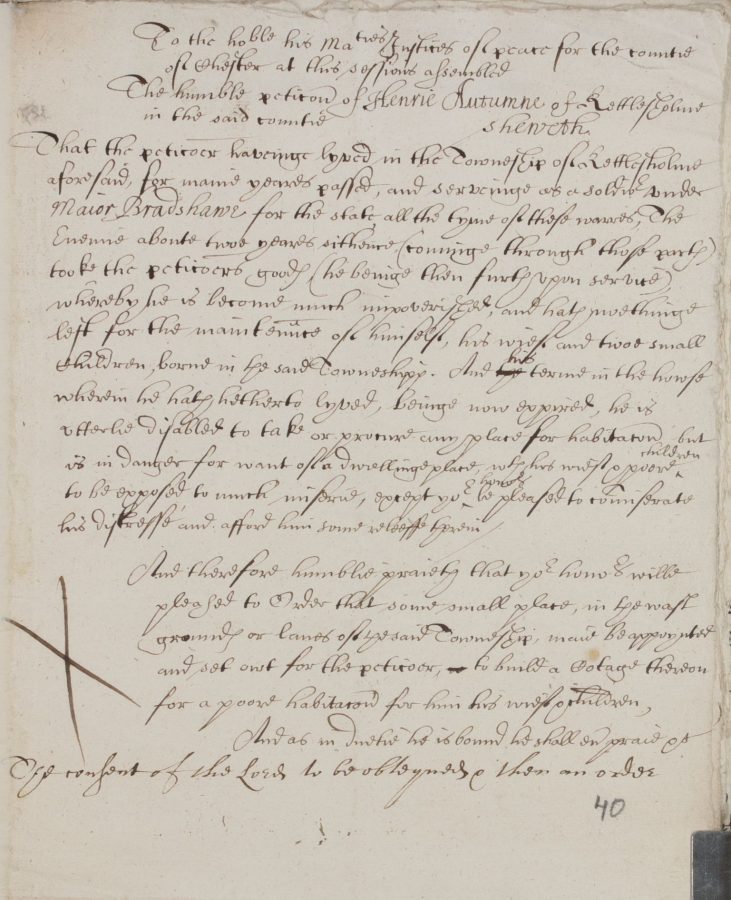 To the hoble his Maties Justices of peace for the countie
of Chester at this sessions assembled
The humble peticon of Henrie Autumne of Kettlesholme
in the said countie
sheweth
That the peticoer haveinge lyved in the Towneship of Kettlesholme
aforesaid, for manie yeares passed, and serveinge as a soldier under
Maior Bradshawe for the state all the tyme of these warres, The
Enemie aboute twoe yeares sithence (cominge through those parts)
tooke the peticoers goods (he beinge then furth upon service)
whereby he is become much impoverished, and hath noethinge
left for the maintenance of himself, his wief and twoe small
Children, borne in the said Towneshipp. And his terme in the howse
wherein he hath hetherto lyved, beinge now expired, he is
utterlie disabled to take or procure any place for habitacon, but
is in danger for want of a dwellinge place, wth his wief & poore children
to be exposed to much miserie, except yor honors be pleased to comiserate
his distresse and afford him some releeffe therein
And therefore humblie praieth that yor honors wilbe
pleased to Order that some small place, in the wast
grounds or lanes of the said Towneship, maie be appoynted
and set owt for the peticoer, to build a Cotage thereon
for a poore habitacon for him his wief & children,
And as in duetie he is bound he shall ever praie &c
The consent of the Lord to be obteyned & then an order
40